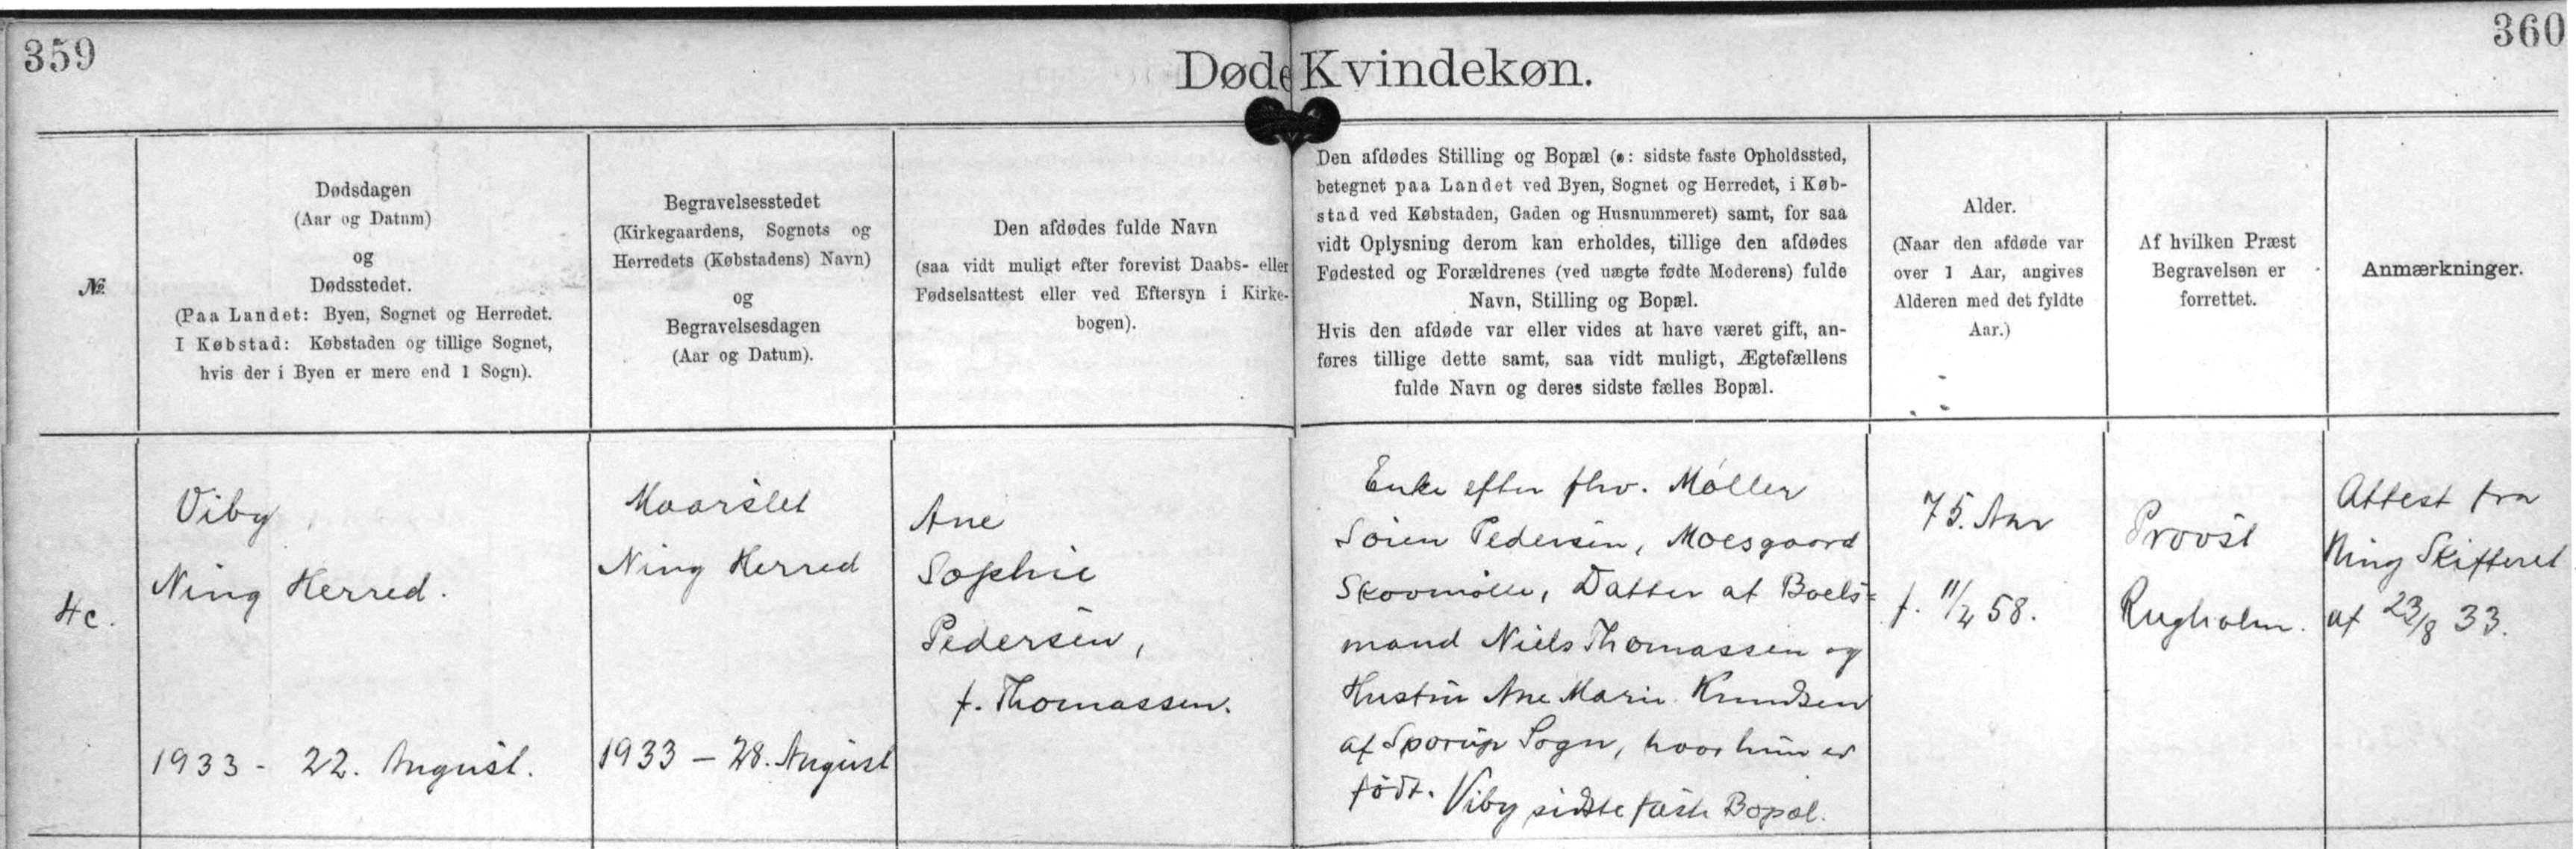 359
360
Døde Kvindekøn.
№
Dødsdagen
(Aar og Datum)
og
Dødsstedet.
(Paa Landet: Byen, Sognet og Herredet.
I Købstad: Købstaden og tillige Sognet,
hvis der i Byen er mere end 1 Sogn).
Begravelsesstedet
(Kirkegaardens, Sognets og
Herredets (Købstadens) Navn)
og
Begravelsesdagen
(Aar og Datum).
Den afdødes fulde Navn
(saa vidt muligt efter forevist Daabs- eller
Fødselsattest eller ved Eftersyn i Kirke-
bogen).
Den afdødes Stilling og Bopæl (ɔ: sidste faste Opholdssted,
betegnet paa Landet ved Byen, Sognet og Herredet, i Køb-
stad ved Købstaden, Gaden og Husnummeret) samt, for saa
vidt Oplysning derom kan erholdes, tillige den afdødes
Fødested og Forældrenes (ved uægte fødte Moderens) fulde
Navn, Stilling og Bopæl.
Hvis den afdøde var eller vides at have været gift, an-
føres tillige dette samt, saa vidt muligt, Ægtefællens
fulde Navn og deres sidste fælles Bopæl.
Alder.
(Naar den afdøde var
over 1 Aar, angives
Alderen med det fyldte
Aar.)
Af hvilken Præst
Begravelsen er
forrettet.
Anmærkninger.
4c.
Viby
Ning Herred.
1933 - 22. August.
Maarslet
Ning Herred
1933 - 28. August
Ane
Sophie
Pedersen,
f. Thomassen.
Enke efter fhv. Møller
Søren Pedersen, Moesgaard
Skovmølle, Datter af Boels=
mand Niels Thomassen og
Hustru Ane Marie Knudsen
af Sporup Sogn, hvor hun er
født. Viby sidste faste Bopæl.
75. Aar
f. 11/4 58.
Provst
Rugholm.
Attest fra
Ning Skifteret
af 23/8 33.